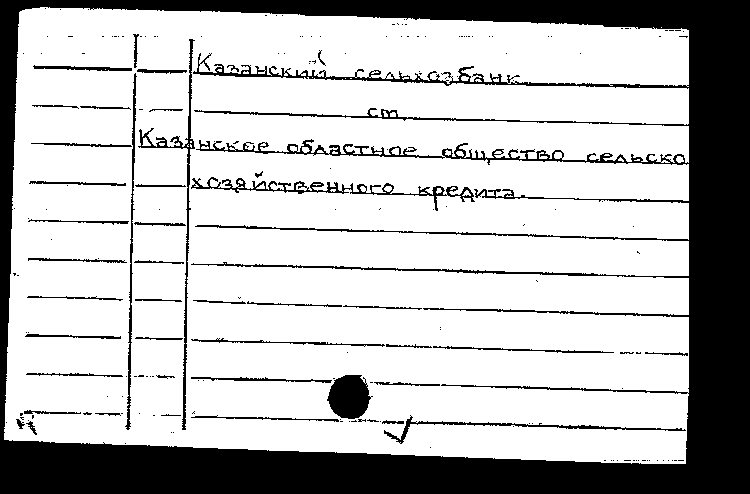 Казанский сельхозбанк
ст.
Казанское областное общество сельско
хозяйственного кредита.